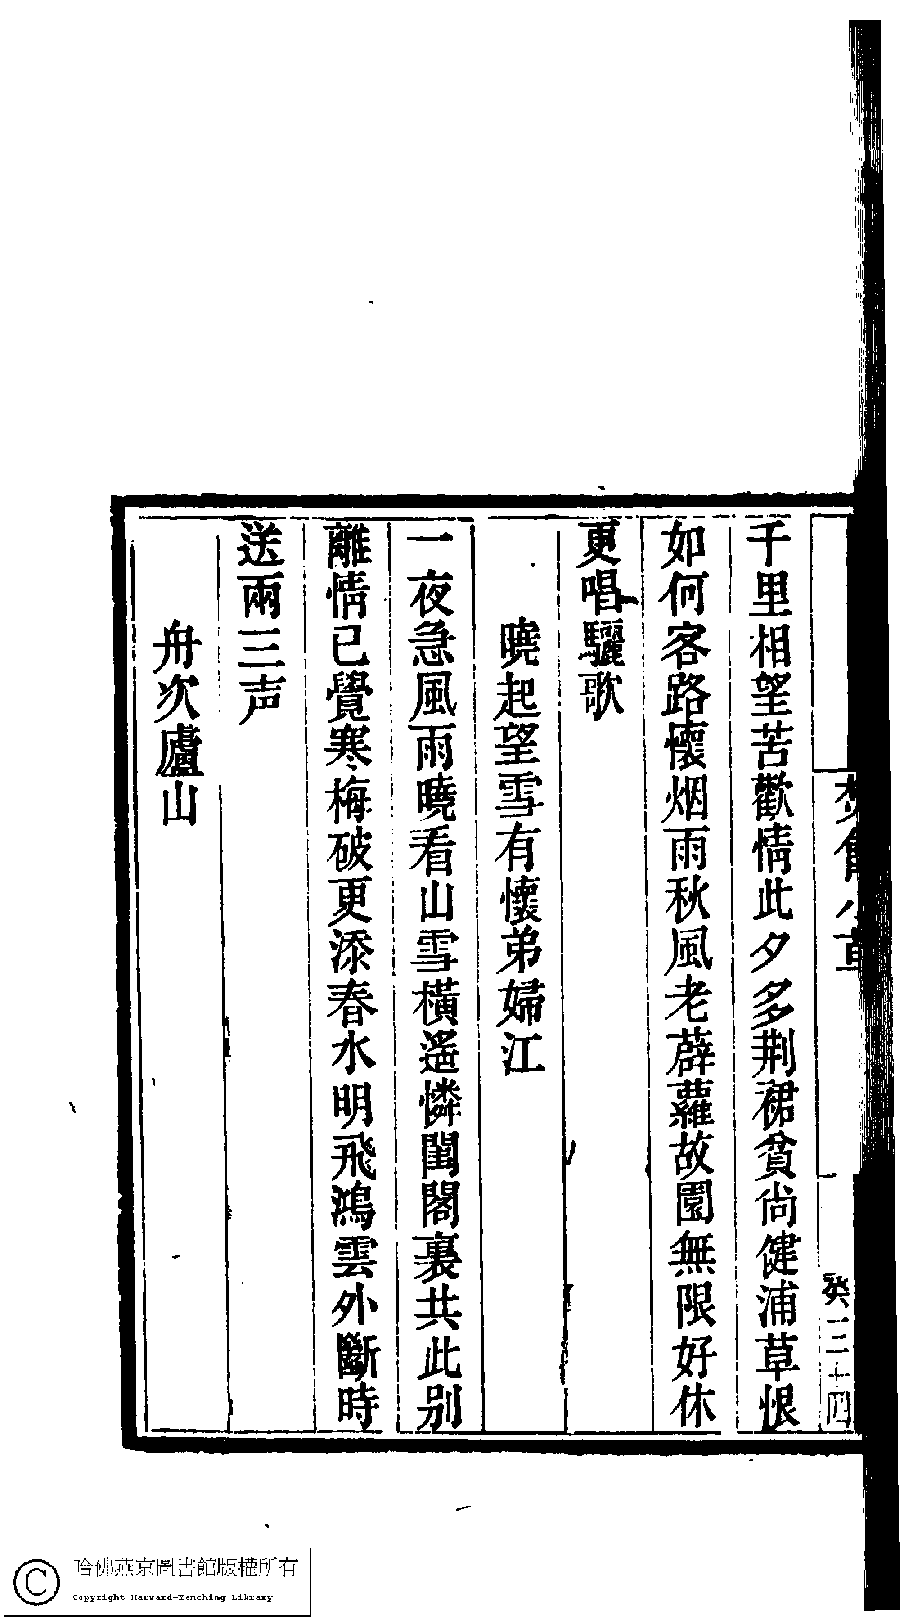 千里相望苦歡情此夕多荆裙貧尚健浦草恨
如何客路懷烟雨秋風老薜蘿故園無限好休
更唱驪歌
曉起望雪有懷弟婦江
一夜急風雨曉看山雪橫遥憐閨閣裏共此别
離情已覺寒梅破更添春水明飛鴻雲外斷時
送兩三声
舟次廬山
癸三十四
哈佛燕京圖書館版權所有
Copyright Harvard-Yenching Library